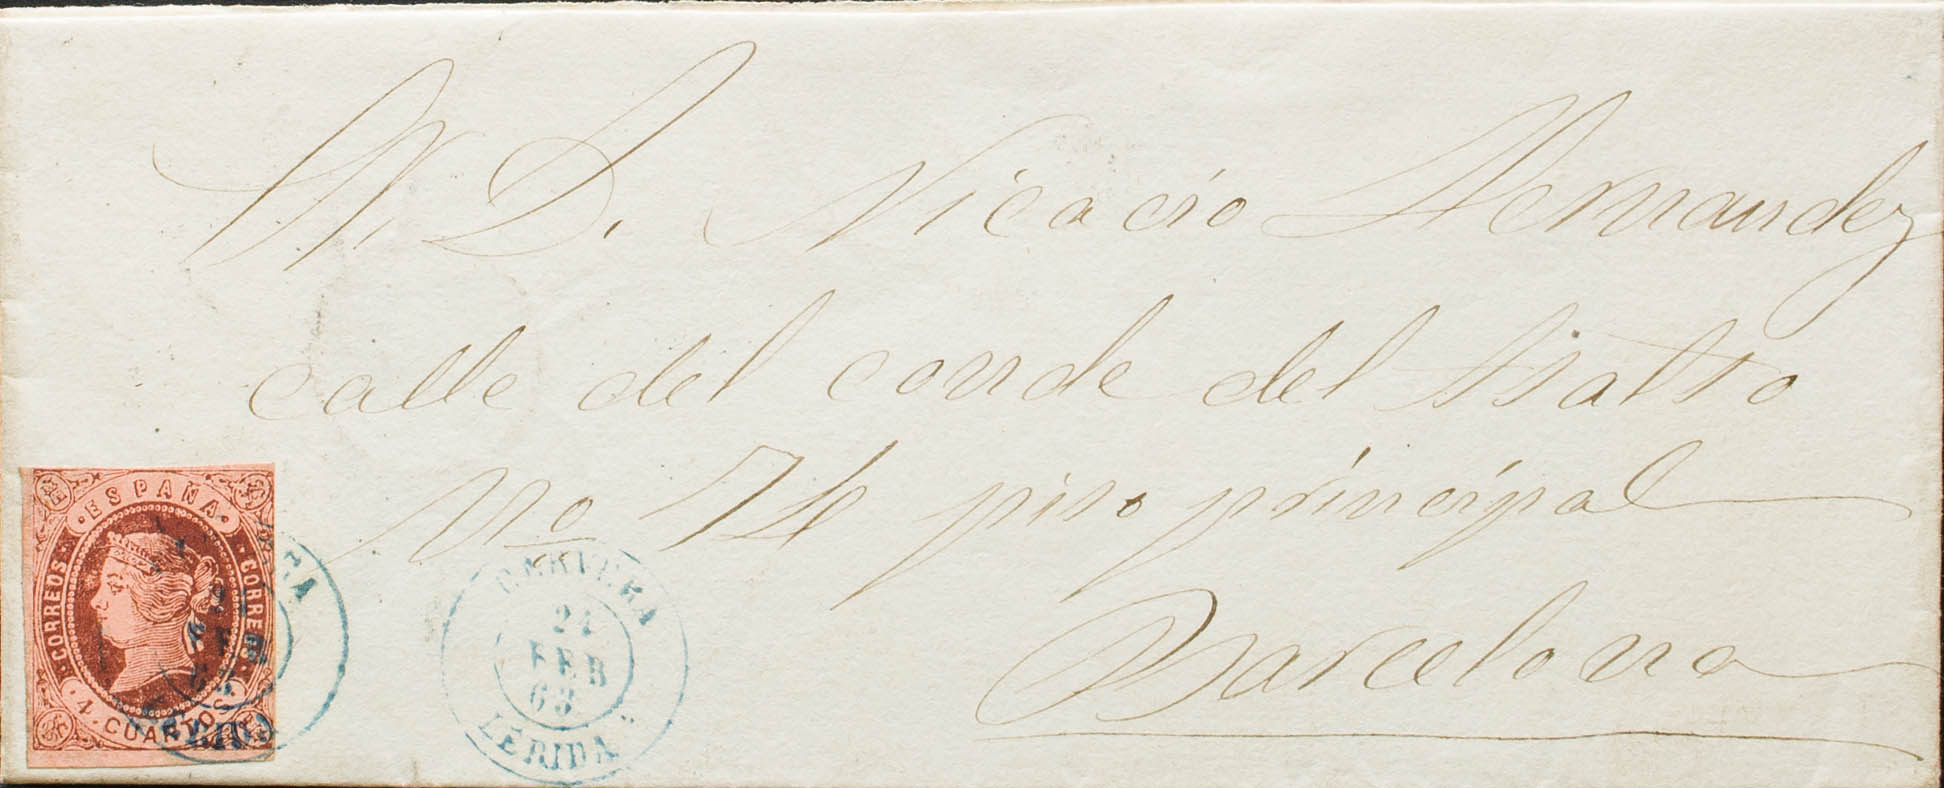 Sr. D. Nicacio Hernandez
calle del conde del Asalto
No 74 piso principal
Barcelona
ESPAÑA
CORREOS
CORREOS
4 CUARTOS
CERVERA
24
FEB
63
LERIDA